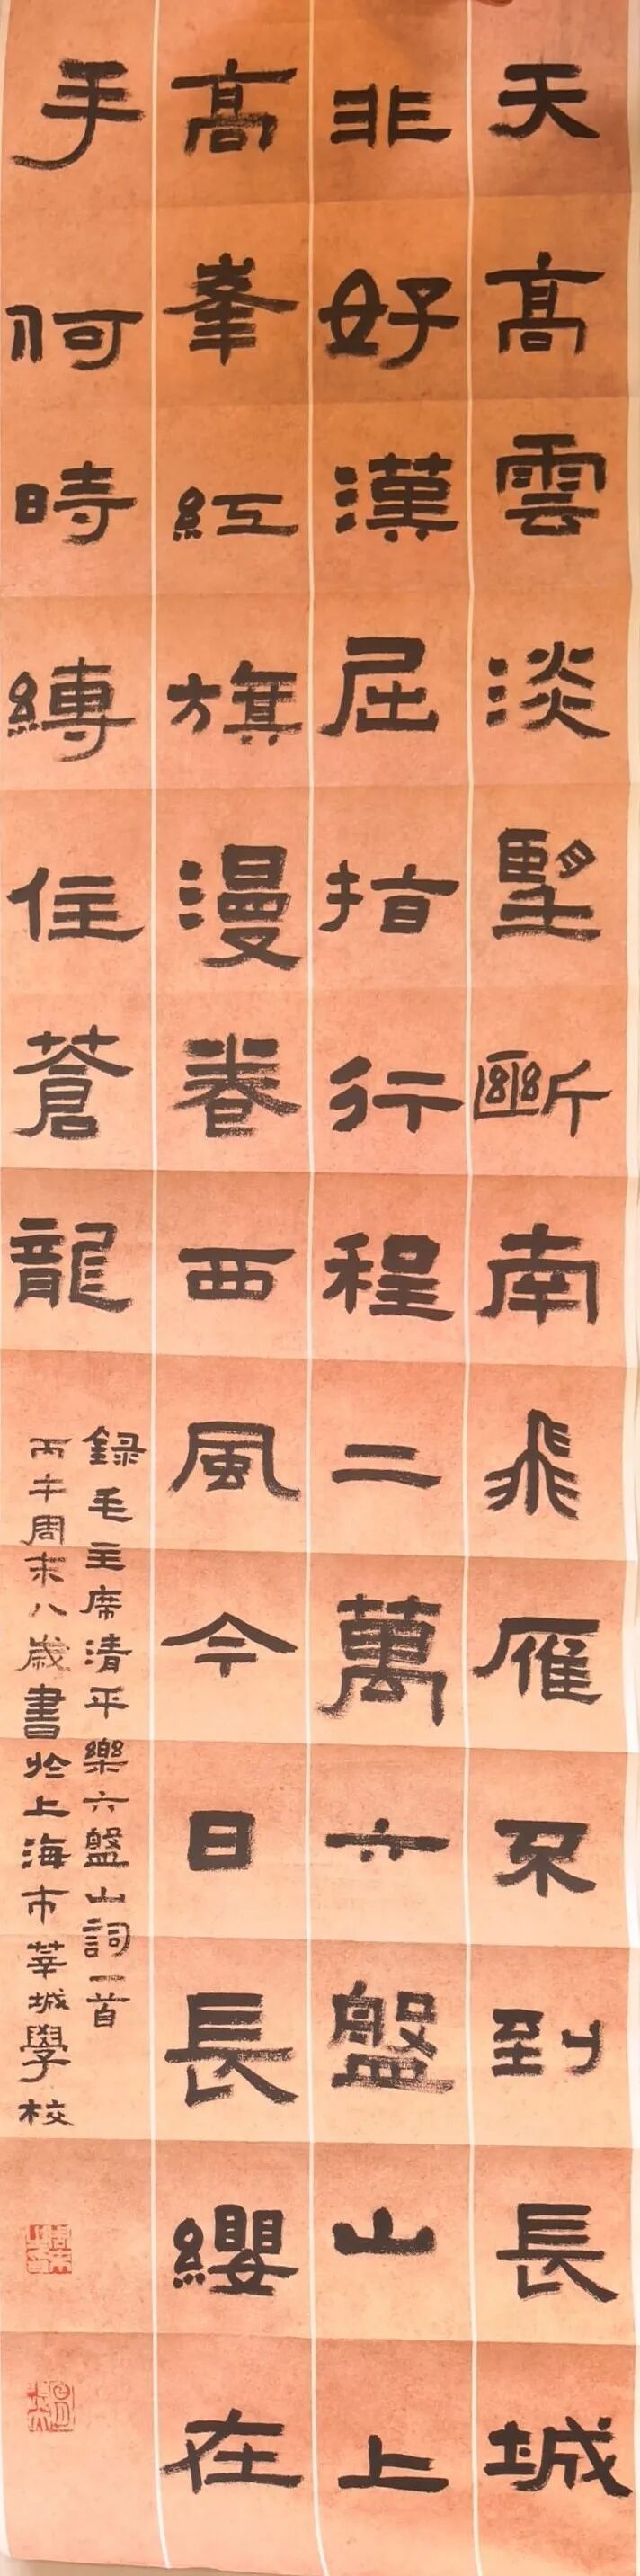 天高雲淡朢斷南飛雁不到長城
非好漢屈指行程二萬六盤山上
高峯紅旗漫卷西風今日長纓在
手何時縛住蒼龍
録毛主席清平樂六盤山詞一首
丙午周末八歲書於上海市莘城學校